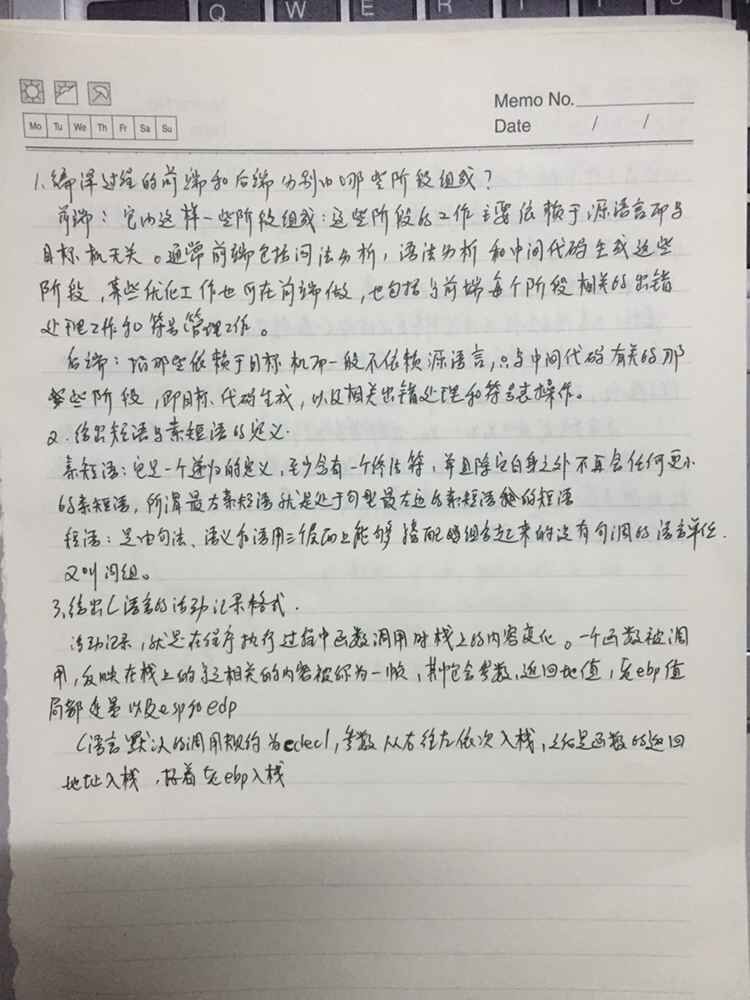 Q W E R T
Memo No.
Mo Tu We Th Fr Sa Su
Date / /
1.编译过程的前端和后端分别由哪些阶段组成？
前端：它由这样一些阶段组成：这些阶段的工作主要依赖于源语言而与
目标机无关。通常前端包括词法分析，语法分析和中间代码生成这些
阶段，某些优化工作也可在前端做，也包括与前端每个阶段相关的出错
处理工作和符号管理工作。
后端：指那些依赖于目标机而一般不依赖源语言，只与中间代码有关的那
些阶段，即目标代码生成，以及相关出错处理和符号表操作。
2.给出短语与素短语的定义.
素短语：它是一个递归的定义，至少含有一个终结符，并且除它自身之外不再含任何更小
的素短语，所谓最左素短语就是处于句型最左边的素短语的短语
短语：是由句法、语义和语用三个层面上能够搭配组合起来的没有句调的语言单位.
又叫词组。
3.给出C语言的活动记录格式.
活动记录，就是在程序执行过程中函数调用时栈上的内容变化。一个函数被调
用，反映在栈上的与之相关的内容被称为一帧，其中包含参数，返回地值，老ebp值
局部变量以及esp和edp
C语言默认的调用规约为cdecl，参数从右往左依次入栈，之后是函数的返回
地址入栈，接着老ebp入栈